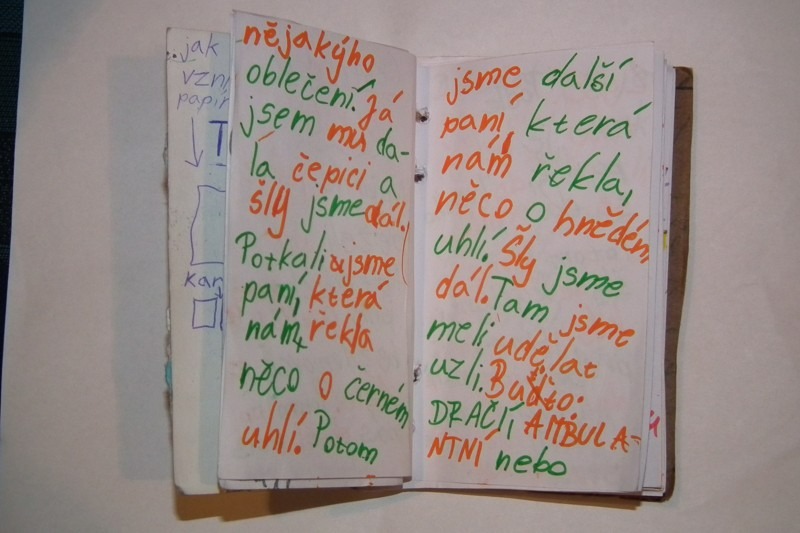 jak
vzni
papír
T
Kar
nějakýho
oblečení. Já
jsem mu da-
la čepici a
šly jsme dál.
Potkali jsme
paní, která
nám řekla
něco o černém
uhlí. Potom
jsme další
paní, která
nám řekla,
něco o hnědém
uhlí. Šly jsme
dál. Tam jsme
meli udělat
uzli. Buďto:
DRAČÍ AMBULA-
NTNÍ nebo